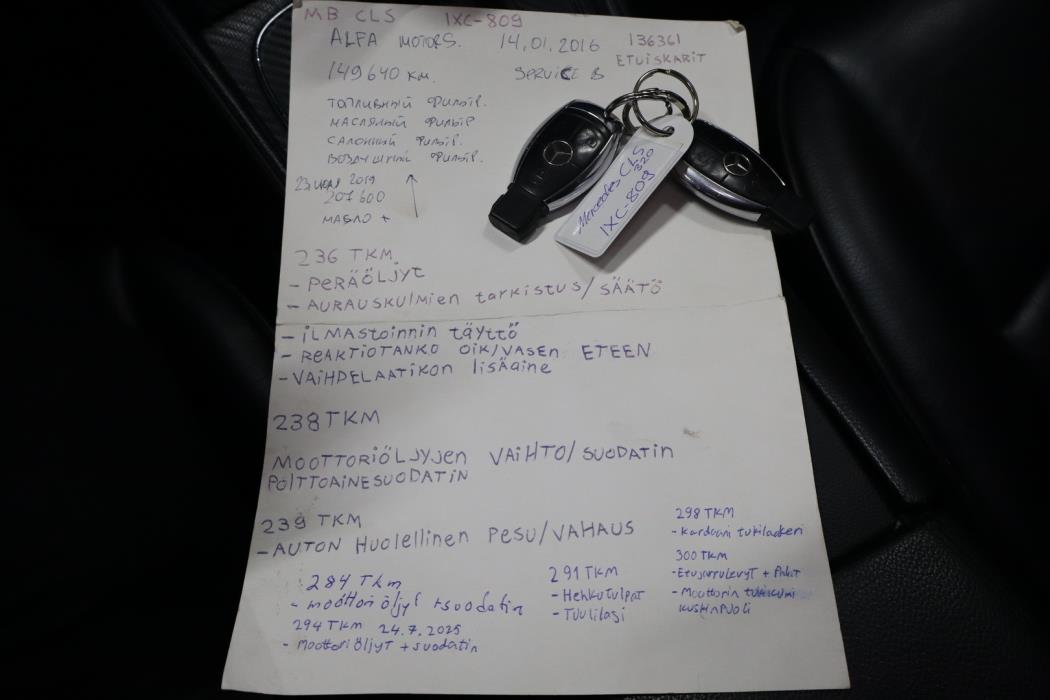 MB CLS IXC-809
ALFA MOTORS. 14.01.2016 136361
ETUISKARIT
149640 км. SERVICE B
ТОПЛИВНЫЙ ФИЛЬТР.
МАСЛЯНЫЙ ФИЛЬТР
САЛОННЫЙ ФИЛЬТР.
ВОЗДУШНЫЙ ФИЛЬТР.
23 2019
207600
МАСЛО +
Mercedes CLS
320
IXC-809
236 TKM.
- PERÄÖLJYT
- AURAUSKULMIEN tarkistus/SÄÄTÖ
- iLMAStoinnin täyttö
- REAKTIOTANKO OIK/VASEN ETEEN
- VAIHDELAATIKON lisäaine
238 TKM
MOOTTORIÖLJYJEN VAIHTO/SUODATIN
POLTTOAINESUODATIN
239 TKM
- AUTON Huolellinen PESU/VAHAUS
284 Tkm
- moottoriöljyt + suodatin
294 TKM 24.7.2025
- Moottoriöljyt + suodatin
291 TKM
- Hehkutulpat
- Tuulilasi
298 TKM
- Kardaani tukilaakeri
300 TKM
- Etujarrulevyt + Palat
- Moottorin tukikumi
kuskinpuoli